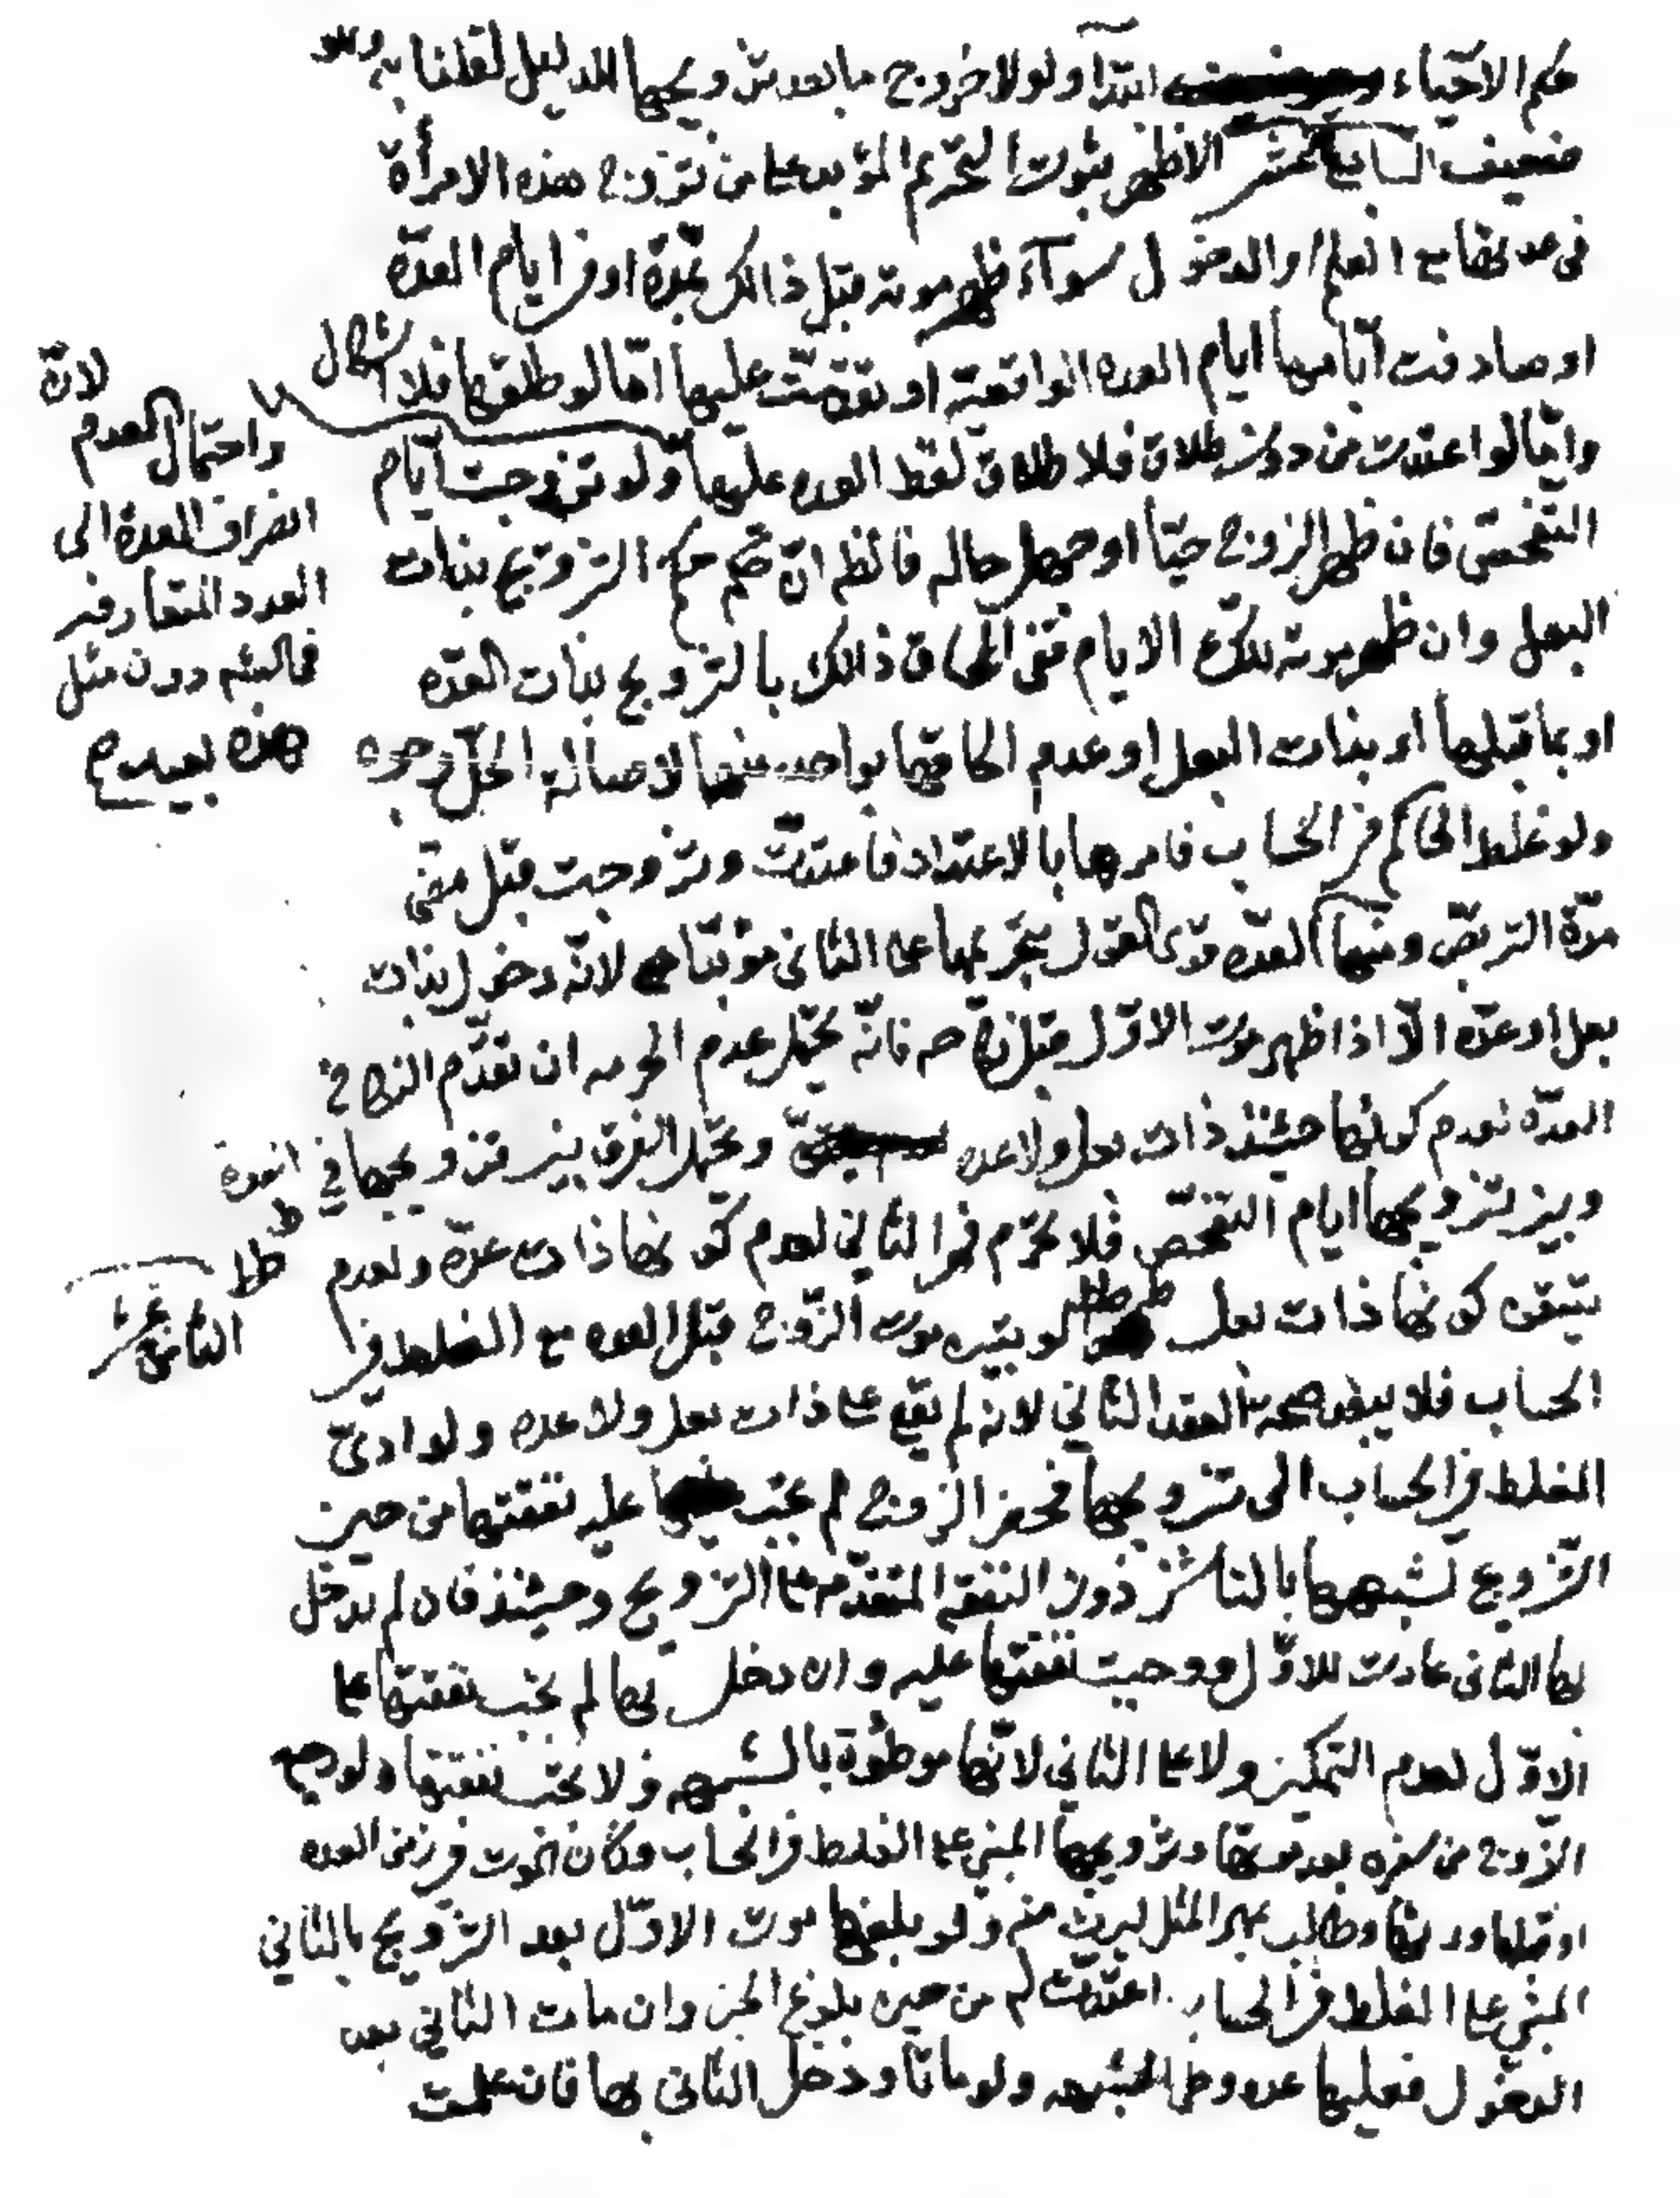 حكم الاحياء ابتدا ولولا خروج ما بعد تزويجها للدليل لقلنا به وهو
ضعيف السابع عشر الاظهر ثبوت التحريم المؤبد على من تزوج هذه الامرأة
في عدتها مع العلم او الدخول سوآء ظهر موته قبل ذالك بمدة او في ايام العدة
او صادفت ايامها ايام العده الواقعية او تقدمت عليها امّا لو طلقها فلا اشكال
وامّا لو اعتدت من دون طلاق فلا طلاق لفظ العده عليها ولو تزوجت ايام
التفحص فان ظهر الزوج حيّاً او جهل حاله فالظم انّ حكم التزويج بذات
البعل وان ظهر موته تلك الايام ففي الحاق ذالك بالتزويج بذات العدّه
او بما قبلها او بذات البعل او عدم الحاقها بواحد منها لاصالة الحلّ وجوه
ولو غلط الحاكم في الحساب فامرها بالاعتداد فاعتدّت وتزوجت قبل مضي
مدّة التربّص ومنها العدّه قوى القول بتحريمها على الثاني مؤبّدا لانّه دخول بذات
بعل او عدّه الّا اذا ظهر موت الاوّل فانّه يحتمل عدم الحرمه ان تقدّم النكاح
العدّه لعدم كونها حينئذ ذات بعل ولا عده ويحتمل الفرق بين تزويجها في العدة
وبين تزويجها ايام التفحّص فلا يحرّم في الثاني لعدم كونها ذات عدّة ولعدم
تيقن كونها ذات بعل لو تبين موت الزّوج قبل العده مع الغلط في
الحساب فلا يبعد صحة العقد الثاني لانه لم يقع على ذات بعل ولا عده ولو ادى
الغلط في الحساب الى تزويجها فحضر الزوج لم تجب عليه نفقتها من حين
التّزويج لشبهها بالناشز دون النفقه المتقدّمه على التزويج وحينئذ فان لم يدخل
بها الثاني عادت للاوّل ووجبت نفقتها عليه وان دخل بها لم تجب نفقتها على
الاوّل لعدم التمكين ولا على الثاني لانّها موطوءة بالشبهه ولا تجب نفقتها ولو رجع
الزّوج من سفره بعد موتها وتزويجها المبني على الغلط في الحساب وكان الموت في زمن العده
او قبلها ورثها وطالب بمهر المثل ليرث منه ولو بلغها موت الاوّل بعد التزويج بالثاني
المبني على الغلط في الحساب اعتدّت له من حين بلوغ الخبر وان مات الثاني بعد
الدخول فعليها عده وطى الشبهه ولو ماتا ودخل الثاني بها فان علمت
لانّ
واحتمال العدم
انصراف العدة الى
العدد المتعارفه
دون مثل
هذه بعيد
الثامن عشر